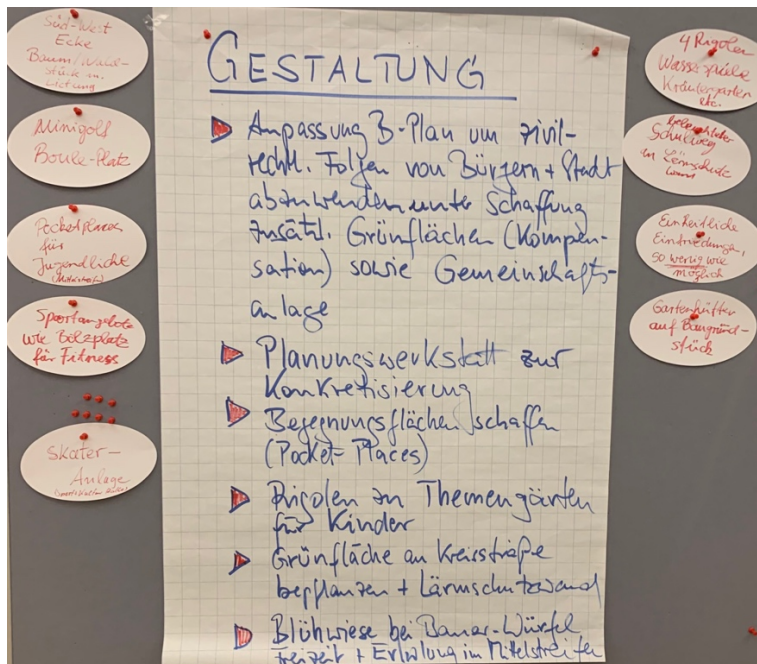 Süd-West
Ecke
Baum/Wald-
stück m.
Lichtung
Minigolf
Boule-Platz
Pocketplaces
für
Jugendliche
(Mittelstreifen)
Sportangebote
wie Bolzplatz
für Fitness
Skater-
Anlage
GESTALTUNG
Anpassung B-Plan um zivil-
rechtl. Folgen von Bürgern + Stadt
abzuwenden unter Schaffung
zusätzl. Grünflächen (Kompen-
sation) sowie Gemeinschafts-
anlage
Planungswerkstatt zur
Konkretisierung
Begegnungsflächen schaffen
(Pocket-Places)
Rigolen zu Themengärten
für Kinder
Grünfläche an Kreisstraße
bepflanzen + Lärmschutzwand
Blühwiese bei Bauer-Würfel
Freizeit + Erholung im Mittelstreifen
4 Rigolen
Wasserspiele
Kräutergarten
etc.
beleuchteter
Schulweg
an Lärmschutz
wand
Einheitliche
Einfriedungen,
so wenig wie
möglich
Gartenhütten
auf Baugrund-
stück